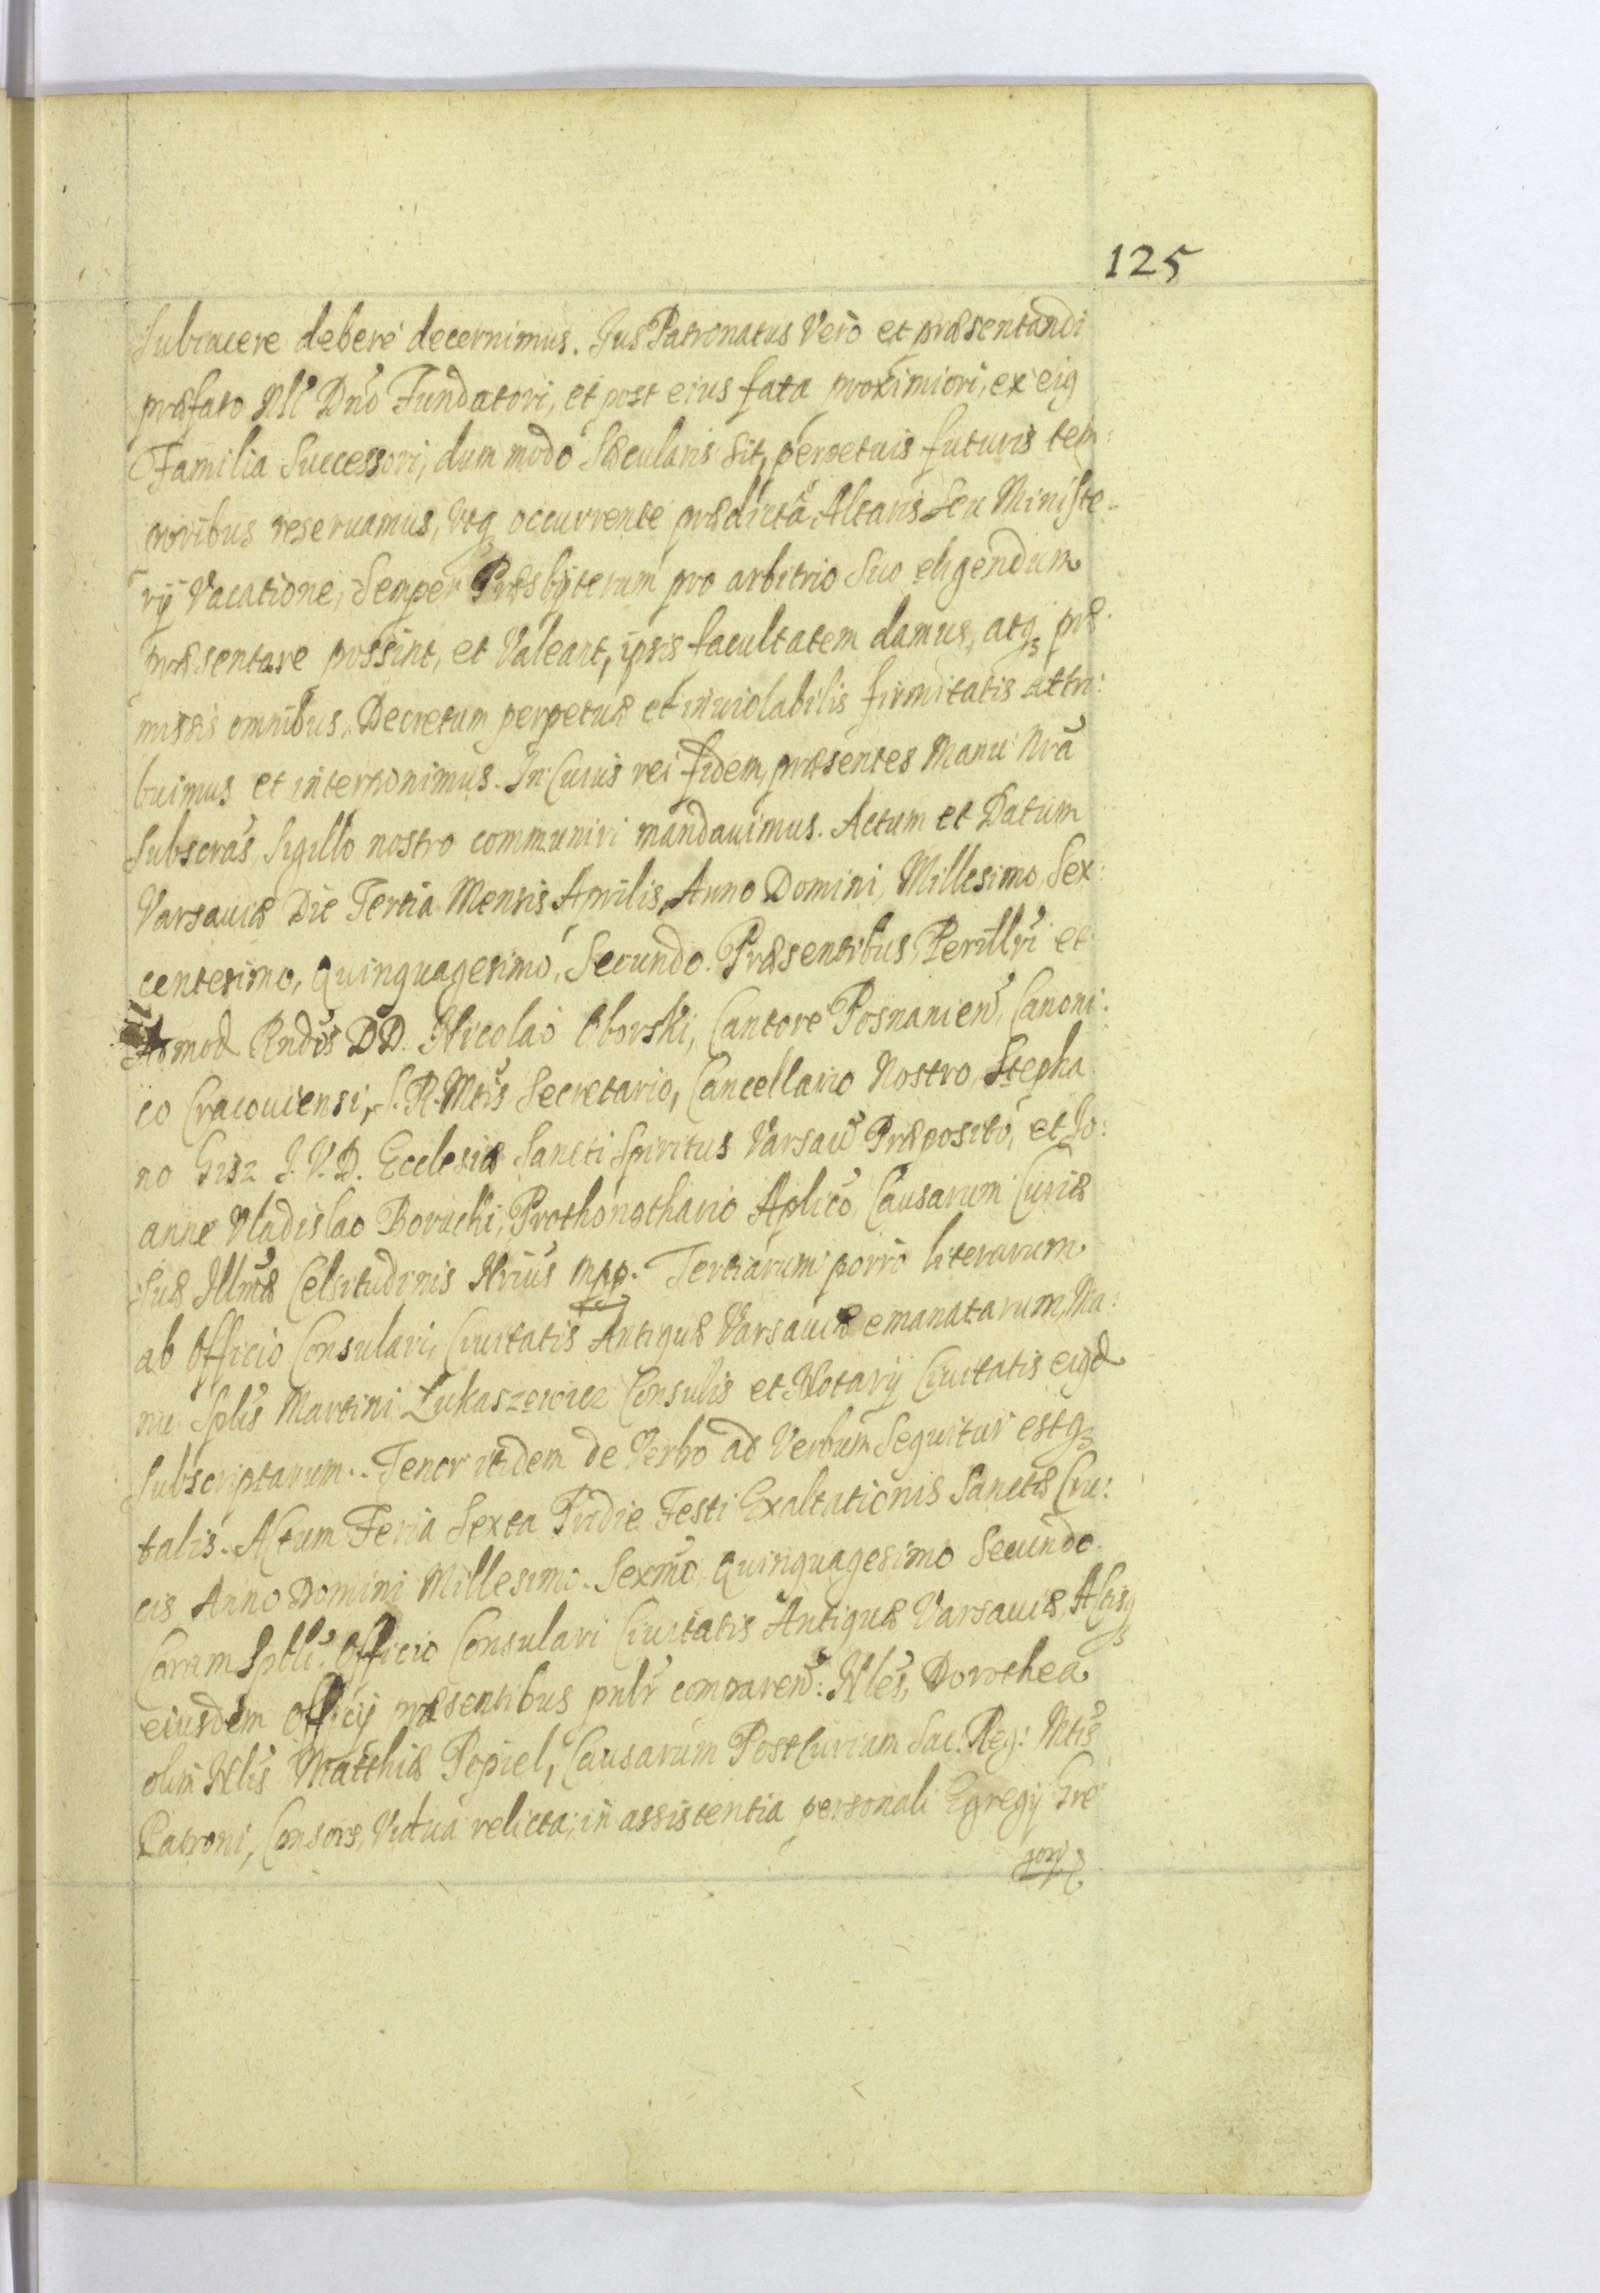 125
Subiacere debere decernimus. Jus Patronatus Vero et præsentandi
præfato Nli Dno Fundatori, et post eius fata proximiori, ex eiq
Familia Successori, dum modo Sæcularis sit, perpetuis futuris tem:
poribus reseruamus, Vtq occurrente prædicta Altaris Seu Ministe-
rÿ Vacatione, Semper Præsbyterum pro arbitrio Suo eligendum
præsentare possint, et Valeant, ipsis facultatem damus, atq præ
missis omnibus, Decretum perpetuæ et inuiolabilis firmitatis attri:
buimus et interponimus. In Cuius rei fidem, præsentes Manu Nra
Subscras, Sigillo nostro communiri mandauimus. Actum et Datum
Varsauiæ Die Tertia Mensis Aprilis, Anno Domini, Millesimo, Sex:
centesimo, Quinquagesimo, Secundo. Præsentibus, Perillri et
Admod Rndis DD. Nicolao Oborski, Cantore Posnanien, Canoni:
co Cracouiensi, S. R. Mtis Secretario, Cancellario Nostro, Stepha
no Gisz J. V. D. Ecclesiæ Sancti Spiritus Varsau Præposito, et Jo:
anne Vladislao Borucki, Prothonothario Aplico, Causarum Curiæ
Suæ Illmæ Celsitudinis Nrius mpp. Tertiarum porro literarum
ab Officio Consulari, Ciuitatis Antiquæ Varsauiæ emanatarum, Ma:
nu Splis Martini Łukaszewicz Consulis et Notarÿ Ciuitatis eiqd
Subscriptarum. Tenor itidem de Verbo ad Verbum Sequitur estq
talis. Actum Feria Sexta Pridie Festi Exaltationis Sanctæ Cru:
cis Anno Domini Millesimo. Sexmo Quinquagesimo Secundo
Coram Spbli Officio Consulari Ciuitatis Antiquæ Varsauiæ, Actisq
eiusdem Officÿ præsentibus pnlr comparen: Nles, Dorothea
olim Nlis Matthiæ Popiel, Causarum Post Curiam Sac: Reg: Mtis
Patroni, Consors, Vidua relicta, in assistentia personali Egregÿ Gre
gorÿ